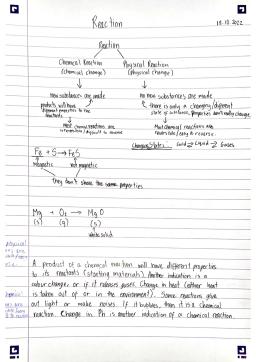 Reaction
18.10.2022
Reaction
Chemical Reaction
(chemical change)
Physical Reaction
(Physical change)
new substances are made
no new substances are made
products will have
different properties to the
reactants
there is only a changing/different
state of substance, Properties don't really change
Most chemical reactions are
irreversible / difficult to reverse
Most chemical reactions are
reversible / easy to reverse.
Changing States: Solid ⇌ Liquid ⇌ Gases
Fe + S → FeS
Magnetic
not magnetic
they don't share the same properties
Mg + O₂ → MgO
(s) (g) (s)
white solid
A product of a chemical reaction will have different properties
to its reactants (starting materials). Another indication is a
colour change, or if it releases gases. Change in heat (either heat
is taken out of or in the environment). Some reactions give
out light or make noises. If it bubbles, then it is a chemical
reaction. Change in Ph is another indication of a chemical reaction.